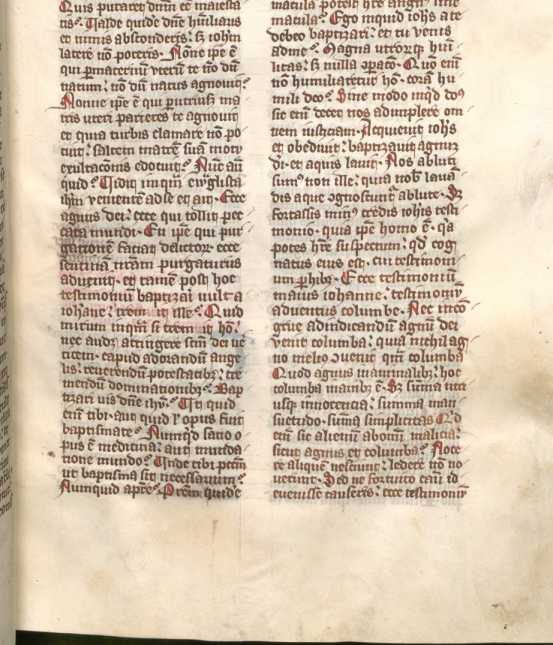 Quis putaret dnm ee maiesta
tis. Valde quidē dnē humiliaris
et nimis absconderis: sȝ iohēm
latere nō poteris. Nōne ipe ē
qui p maternū uterū te nō dū
natum: nō dū natus agnouit?
Nonne ipe ē qui p utriusq ma
tris uteri parietes te agnouit
et quia turbis clamare nō po
tuit: saltem matrē suā motu
exultacōnis edocuit? Nūc aūt
quid? Uidit inquit ewgelista
ihm veniente ad se et ait. Ecce
agnus dei: ecce qui tollit pec
cata mundi. Eu ipe qui pur
gationē faciat delictorʒ ecce
sentinā nrām purgaturus
aduenit. et tamē post hoc
testimoniū baptizari vult a
iohāne: 
nec audʒ attingere scm dei ue
ticem. capud adorandū ange
lis. reuerendū potestatibʒ: tre
mendū dominationibʒ? Bap
tizari vis dnē ihū? Ut quid
enī tibi. aut quid opus fuit
baptismate? Nunqd sano o
pus ē medicina: aut munda
tione mundo? Unde tibi pctm
ut baptisma sit necessarium?
Nunquid a pre? Prem quidē
macula. Ego inquid iohs a te
debeo baptizari: et tu venis
ad me? Magna utrobiqʒ hūi
litas: sȝ nulla cpatō. Quō enī
nō humiliaretur hō. corā hu
mili deo? Sine modo inqd dos
sic enī decet nos adimplere om
nem iusticiam. Acquieuit iohs
et obediuit: baptizauit agnum
di. et aquas lauit. Nos abluti
sumus non ille: quia nob lauan
dis aque ognoscunt ablute. Sȝ
fortassis minus credis iohis testi
monio. quia ipe homo ē. q a
potes hre suspectum: qd cog
natus eius est. cui testimoni
um phibʒ. Ecce testimoniū
maius iohanne: testimoniū
aduentus columbe. Nec incō
grue ad indicandū agnū dei
venit columba: quia nichil ag
no melius ouenit qm columba
Quod agnus in animalibʒ: hoc
columba in auibʒ ē. Sȝ suma utri
usqʒ innocentia: summa man
suetudo. suma simplicitas Qd
enī sic alienū ab omni malicia:
sicut agnus et columba? Noce
re aliquē nesciunt: ledere nō no
uerunt. Sed ne fortuito casu id
euenisse causeris: ecce testimoniū